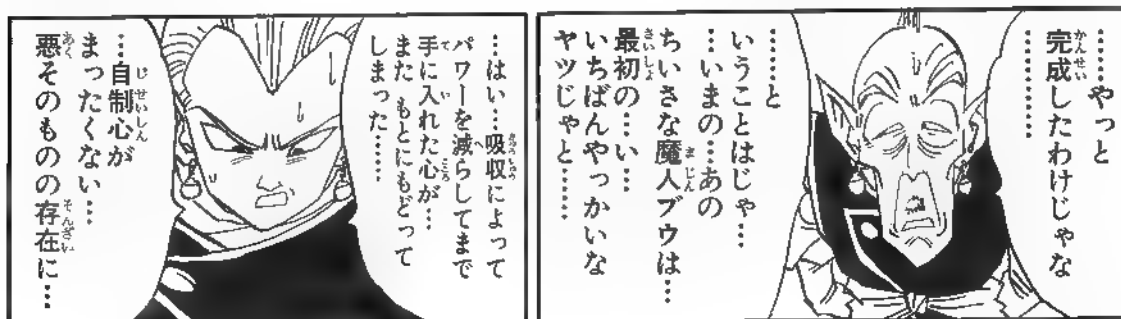 ……やっと
完成したわけじゃな
…………
………と
いうことはじゃ…
…いまの…あの
ちいさな魔人ブウは…
最初の…い…
いちばんやっかいな
ヤツじゃと……
…はい…吸収によって
パワーを減らしてまで
手に入れた心が…
また もとにもどって
しまった……
…自制心が
まったくない…
悪そのものの存在に…